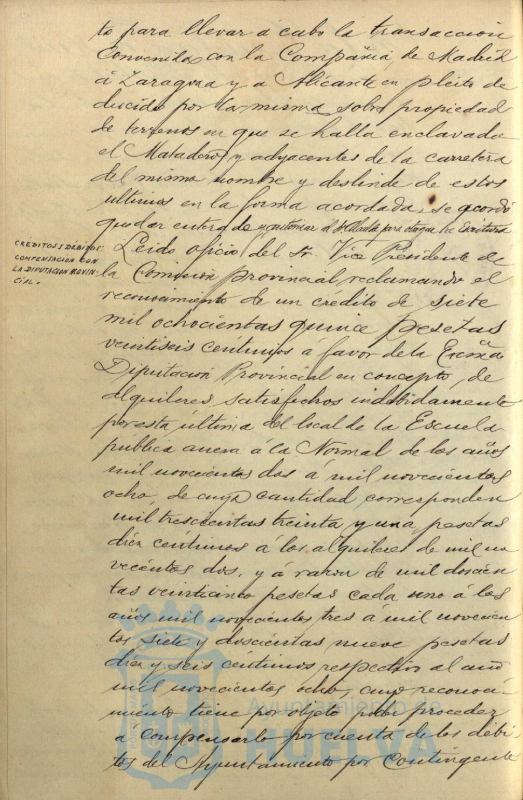 to para llevar á cabo la transacción
convenida con la Compañia de Madrid
á Zaragoza y á Alicante en pleito de
ducido por la misma sobre propiedad
de terrenos en que se halla enclavado
el Matadero, y adyacentes de la carretera
del mismo nombre y deslinde de estos
ultimos en la forma acordada, se acordó
quedar enterado y autorizar al Sr Alcalde para otorgar la Escritura
CRÉDITOS Y DÉBITOS.
COMPENSACION CON
LA DIPUTACION PROVIN-
CIAL.
Leido oficio del Sr. Vice Presidente de
la Comision provincial reclamando el
reconocimiento de un credito de siete
mil ochocientas quince pesetas
veintiseis centimos á favor de la Excma
Diputación Provincial en concepto, de
alquileres satisfechos indebidamente
por esta última del local de la Escuela
publica anexa á la Normal de los años
mil novecientos dos á mil novecientos
ocho, de cuya cantidad corresponden
mil trescientas treinta y una pesetas
diez céntimos á los alquileres de mil no
vecientos dos, y á razon de mil doscien
tas veinticinco pesetas cada uno á los
años mil novecientos tres á mil novecien
tos siete y doscientas nueve pesetas
diez y seis céntimos respectivo al año
mil novecientos ocho, cuyo reconoci-
miento tiene por objeto poder proceder
a compensarlo por cuenta de los débi-
tos del Ayuntamiento por Contingente
Ayuntamiento de
HUELVA